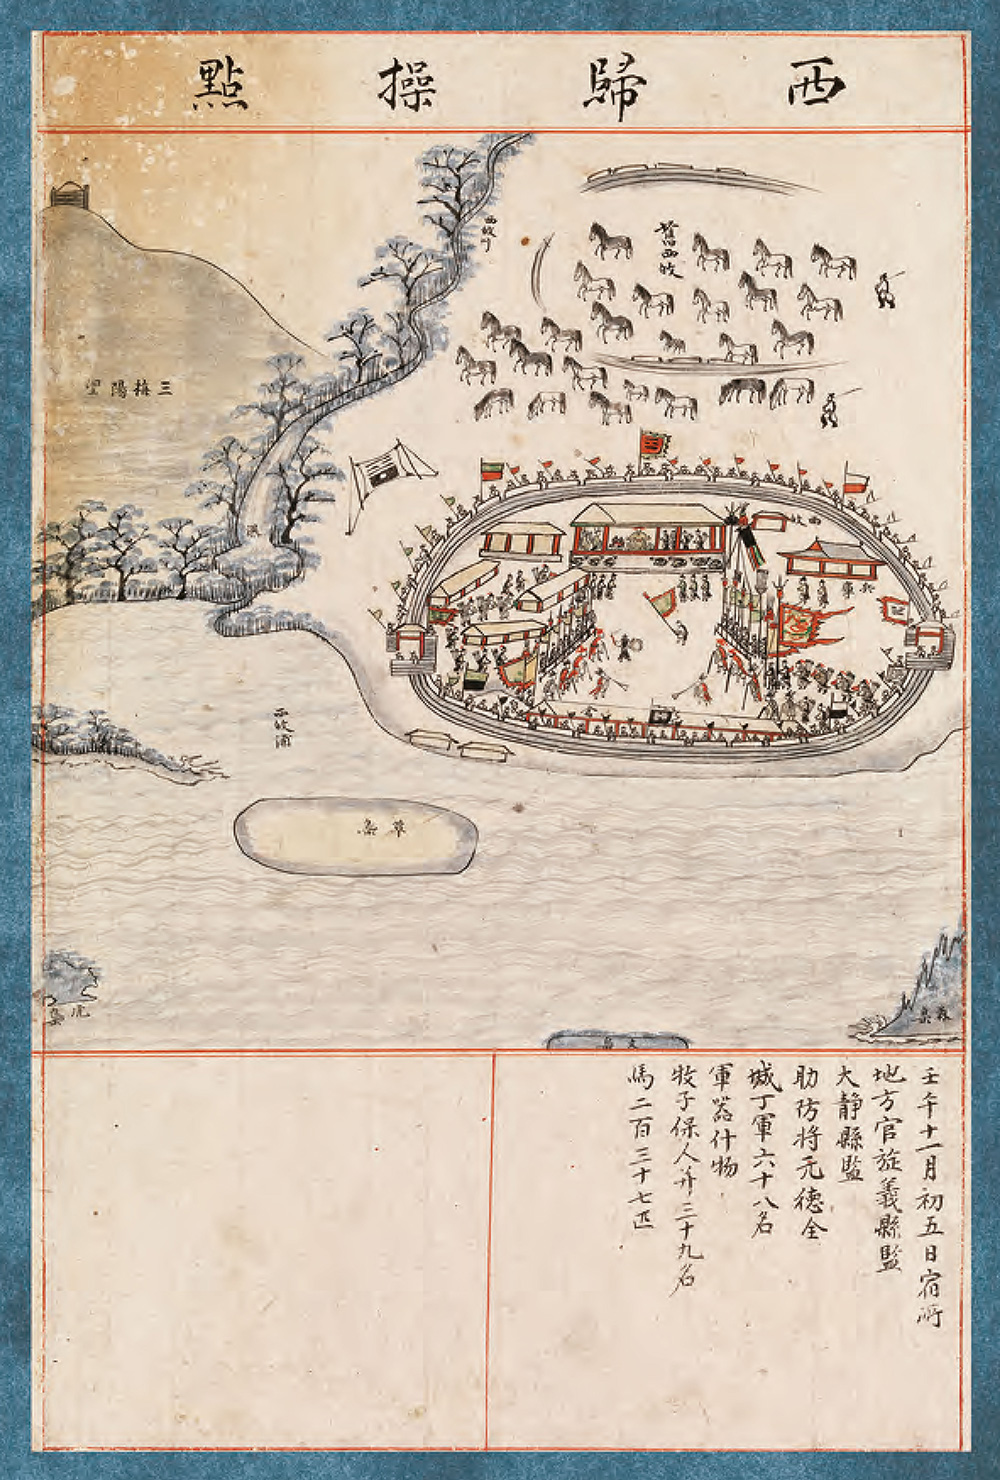 西歸操點
舊西㱕
三梅陽望
西㱕
西㱕浦
草島
虎島
森島
壬午十一月初五日宿所
地方官旌義縣監
大静縣監
助防將元德全
城丁軍六十八名
軍器什物
牧子保人幷三十九名
馬二百三十七匹